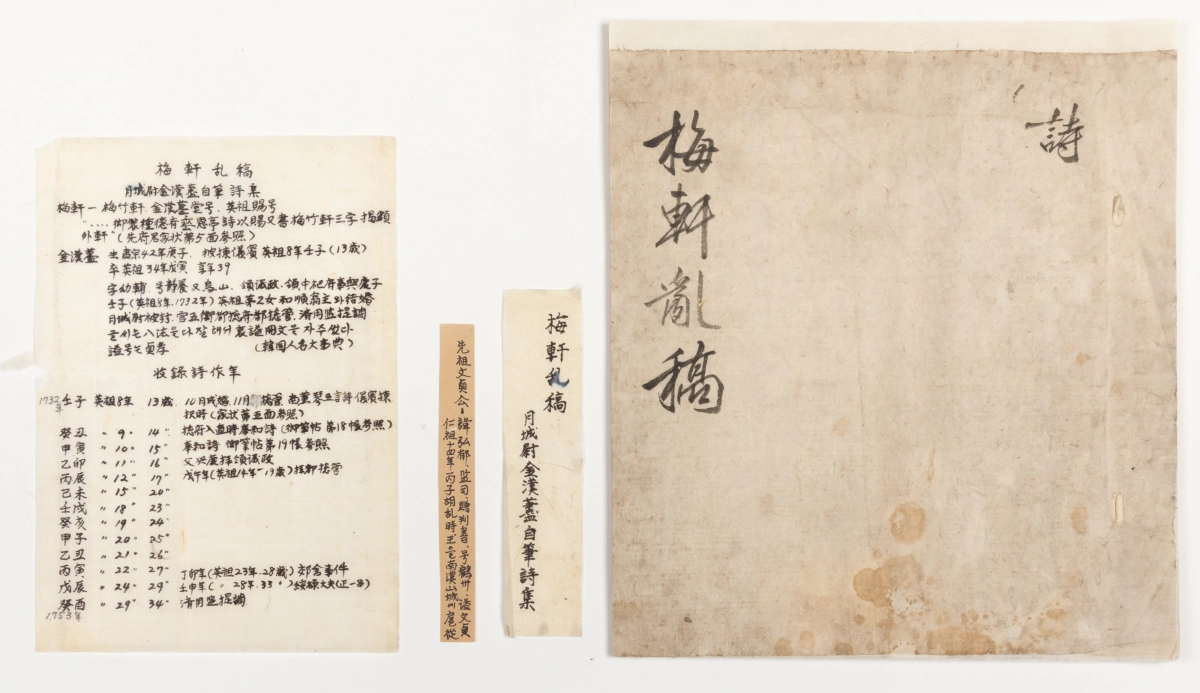 梅軒乱稿
月城尉金漢藎自筆詩集
梅軒一 梅竹軒 金漢藎堂号、英祖賜号
"‥‥御製種德有齊恩亭詩以賜又書梅竹軒三字揭額
外軒" (先府君家狀第5面参照)
金漢藎 生肅宗42年庚子、被揀儀賓英祖8年壬子(13歲)
卒英祖34年戊寅 享年39
字幼輔 号
領議政
壬子(英祖8年、1732年)英祖第2女和順翁主와結婚
月城尉被封、官五衛都揔府都揔管、濟用監提調
글씨는八法을다잘해서
諡号는貞孝 (韓國人名大事典)
收錄詩作年
1732年 壬子 英祖8年 13歲 10月成婚 11月
五言詩 儀賓揀
択時(家狀第五面参照)
癸丑 〃 9〃 14〃 揔府入直時奉和詩(御筆帖 第18帳参照)
甲寅 〃10〃 15〃 奉和詩 御筆帖第19帳参照
乙卯 〃11〃 16〃 父興慶拝領議政
丙辰 〃12〃 17〃 戊午年(英祖14年-19歲)拝都揔管
己未 〃15〃 20〃
壬戌 〃18〃 23〃
癸亥 〃19〃 24〃
甲子 〃20〃 25〃
乙丑 〃21〃 26〃
丙寅 〃22〃 27〃 丁卯年(英祖23年、28歲)
事件
戊辰 〃24〃 29〃 壬申年(〃28年、33〃)綏祿大夫(正一品)
癸酉 〃29〃 34〃 濟用監提調
1753年
先祖文貞公: 諱弘郁、監司、贈判書、号鶴州、諡文貞
仁祖十四年丙子胡乱時、王을南漢山城에扈從
梅軒乱稿
月城尉金漢藎自筆詩集
詩
梅軒亂稿